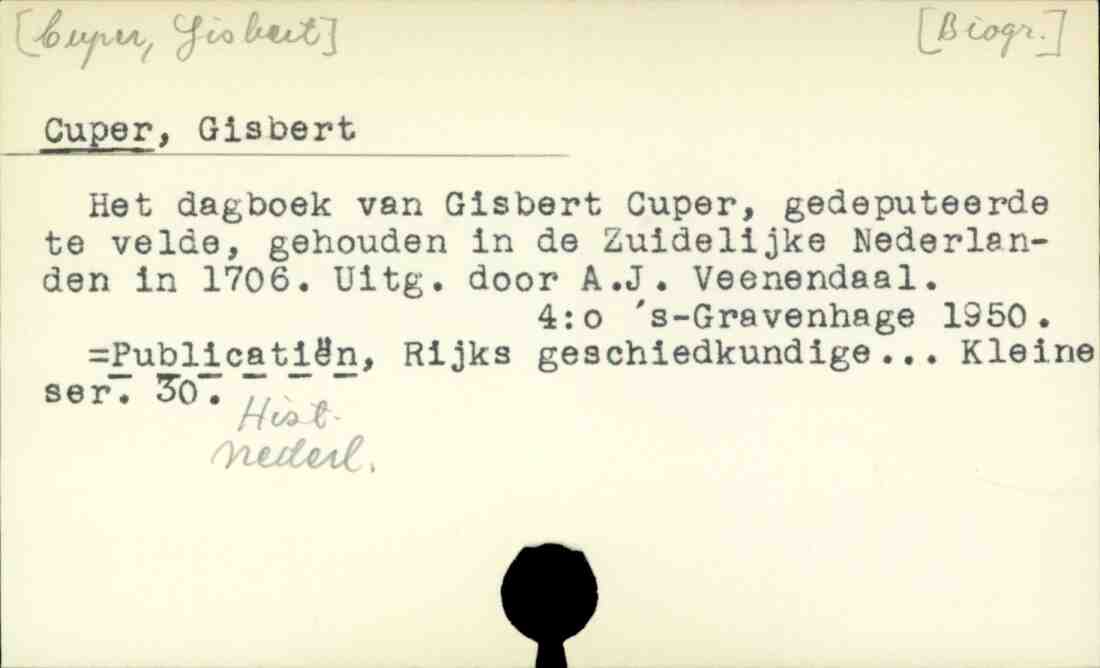 [Cuper, Gisbert] [Biogr.]
Cuper, Gisbert
Het dagboek van Gisbert Cuper, gedeputeerde
te velde, gehouden in de Zuidelijke Nederlan-
den in 1706. Uitg. door A.J. Veenendaal.
4:o 's-Gravenhage 1950.
=Publicatiën, Rijks geschiedkundige... Kleine
ser. 30.
Hist.
nederl.